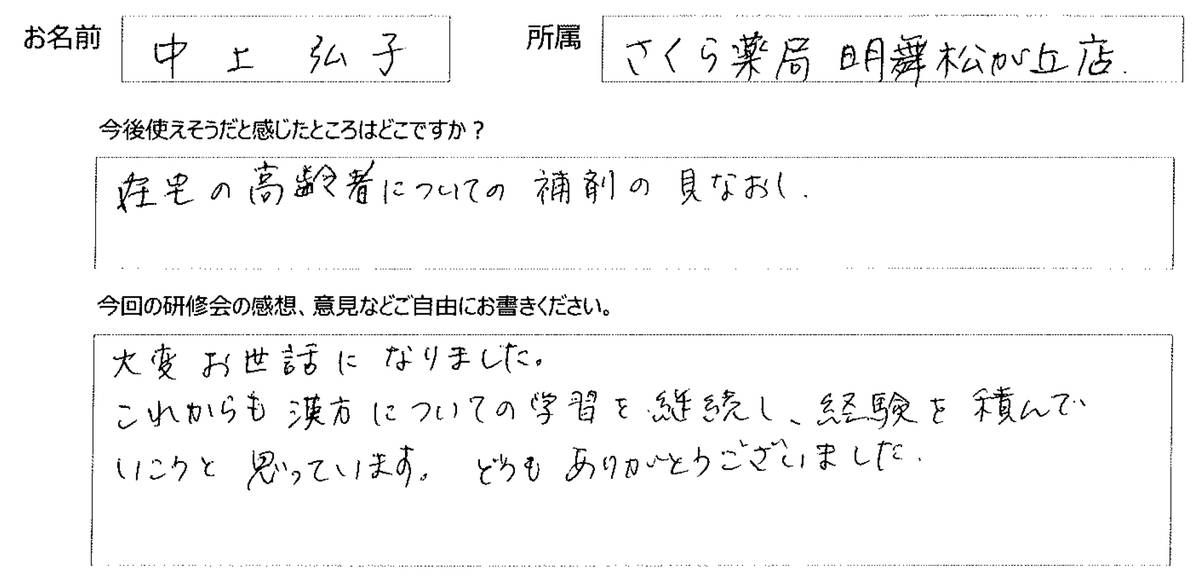 お名前 中上 弘子 所属 さくら薬局 明舞松が丘店.
今後使えそうだと感じたところはどこですか？
在宅の高齢者についての 補剤の 見なおし.
今回の研修会の感想、意見などご自由にお書きください。
大変 お世話に なりました。
これからも 漢方についての学習を 継続し、経験を 積んで
いこうと 思っています。 どうも ありがとうございました.